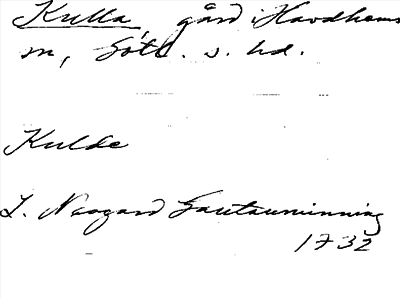 Kulla gård i Havdhems
sn, Gotl. s. hd.
Kulde
L. Neogard Gautauminning
1732